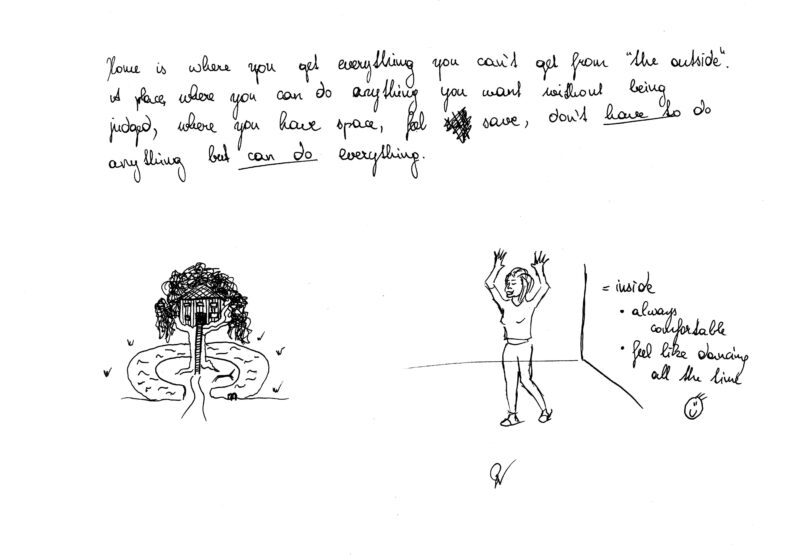 Home is where you get everything you can't get from "the outside".
A place, where you can do anything you want without being
judged, where you have space, feel save, don't have to do
anything but can do everything.
= inside
• always
comfortable
• feel like dancing
all the time